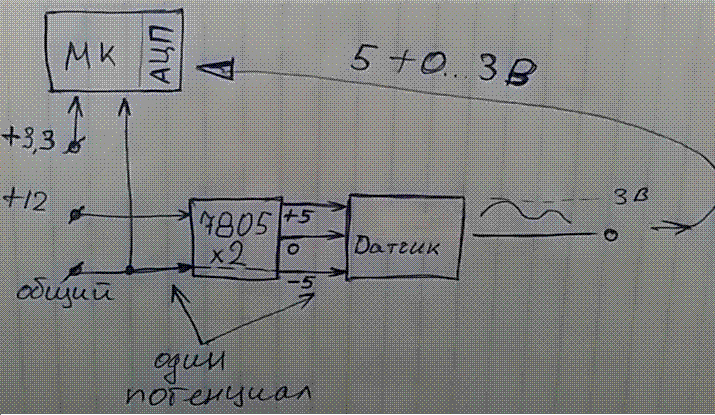 МК
АЦП
5 + 0... 3 В
+3,3
+12
3 В
7805
x2
+5
0
-5
Датчик
общий
один
потенциал